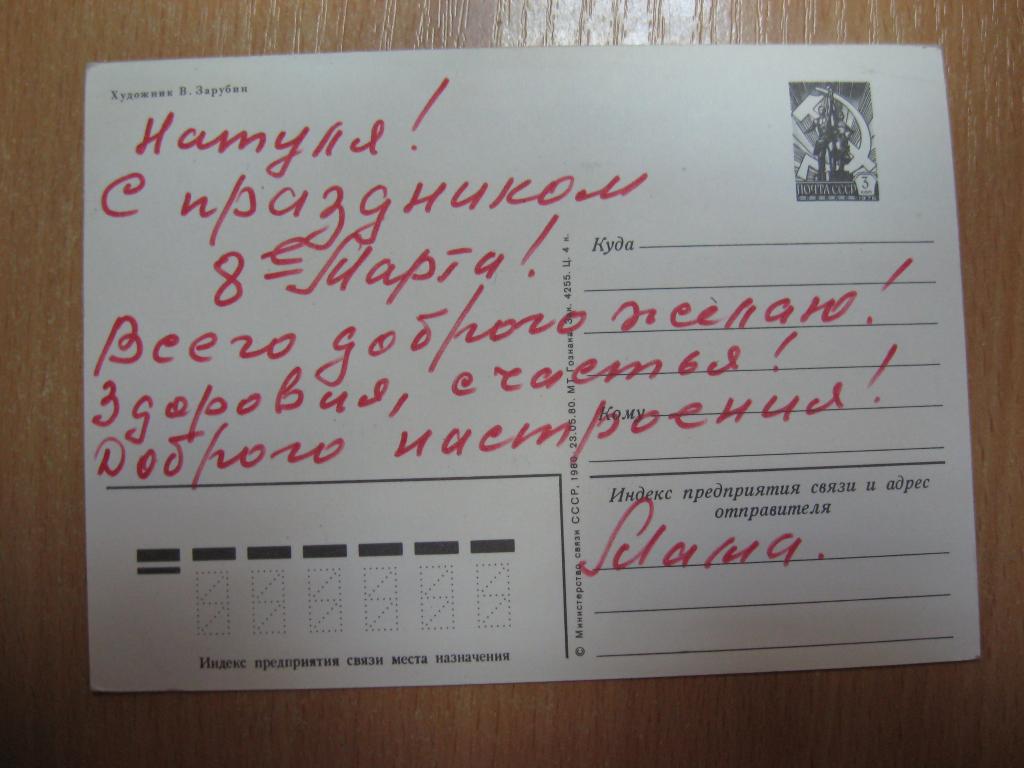 Художник В. Зарубин
Натуля!
С праздником
8е Марта!
Всего доброго желаю!
Здоровия, счастья!
Доброго настроения!
Мама.
ПОЧТА СССР
3
Куда
Кому
Индекс предприятия связи и адрес
отправителя
© Министерство связи СССР, 1980. 23.05.80. МТ Гознака. Зак. 4255. Ц. 4 к.
Индекс предприятия связи места назначения